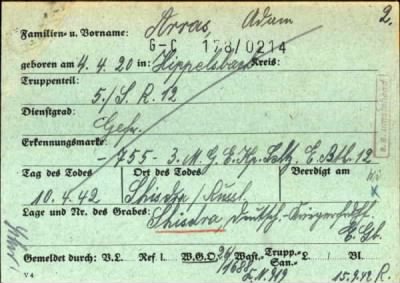 2.
Familien- u. Vorname: Arras, Adam
G-C 178/0214
geboren am 4.4.20 in: Kreis:
Truppenteil:
5./I.R. 12
Dienstgrad:
Gefr.
Erkennungsmarke:
-755- 3. M.G.E.Kp. Inf. E. Btl. 12
Tag des Todes Ort des Todes Beerdigt am
10.4.42 Shisdra / Russl.
Lage und Nr. des Grabes:
Shisdra, Deutsch.
E. Gb.
Gemeldet durch: V.L. Ref I. W.G.O. Wast.- Trupp.- San.- L. Bl.
V 4 15.9.42 R.